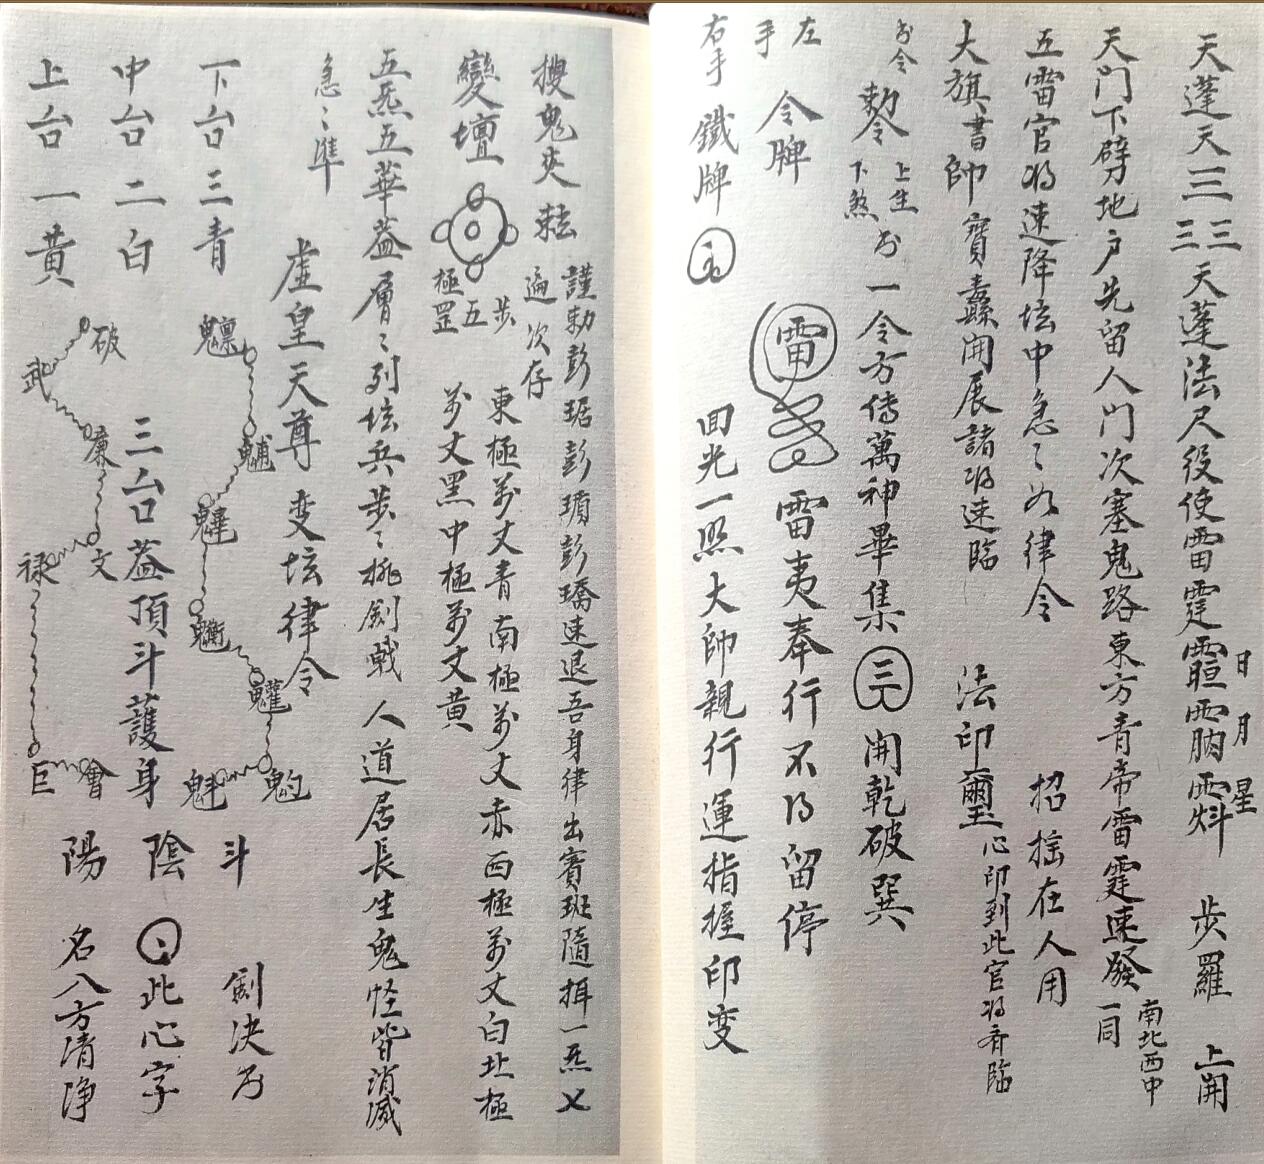 天蓬天三三三天蓬法尺役使雷霆 日月星 步羅 上開
天门下劈地户先留人门次塞鬼路東方青帝雷霆速發一同 南北西中
五雷官将速降坛中急〻如律令 招摇在人用
大旗書帥寳纛開展諸将速臨 法印璽心印到此官将齐臨
勅令 上生下煞 一令方传萬神畢集 開乾破巽
左手 令牌 雷 雷夷奉行不得留停
右手 鐵牌 回光一照大帥親行運指握印变
搜鬼夾 謹勅彭琚彭瓆彭矯速退吾身律出賽班隨 一炁
遍次存
變壇 步五極罡 東極萬丈青南極萬丈赤西極萬丈白北極
萬丈黑中極萬丈黄
五炁五華盖層〻列坛兵步〻挑劍戟 人道居長生鬼怪皆消滅
急〻準 虚皇天尊 变坛律令
下台三青 魒 魓 魁 魀 斗 劍决
中台二白 三台盖頂斗護身 陰 此心字
上台一黄 破 武 廉 文 禄 巨 陽 名八方清净